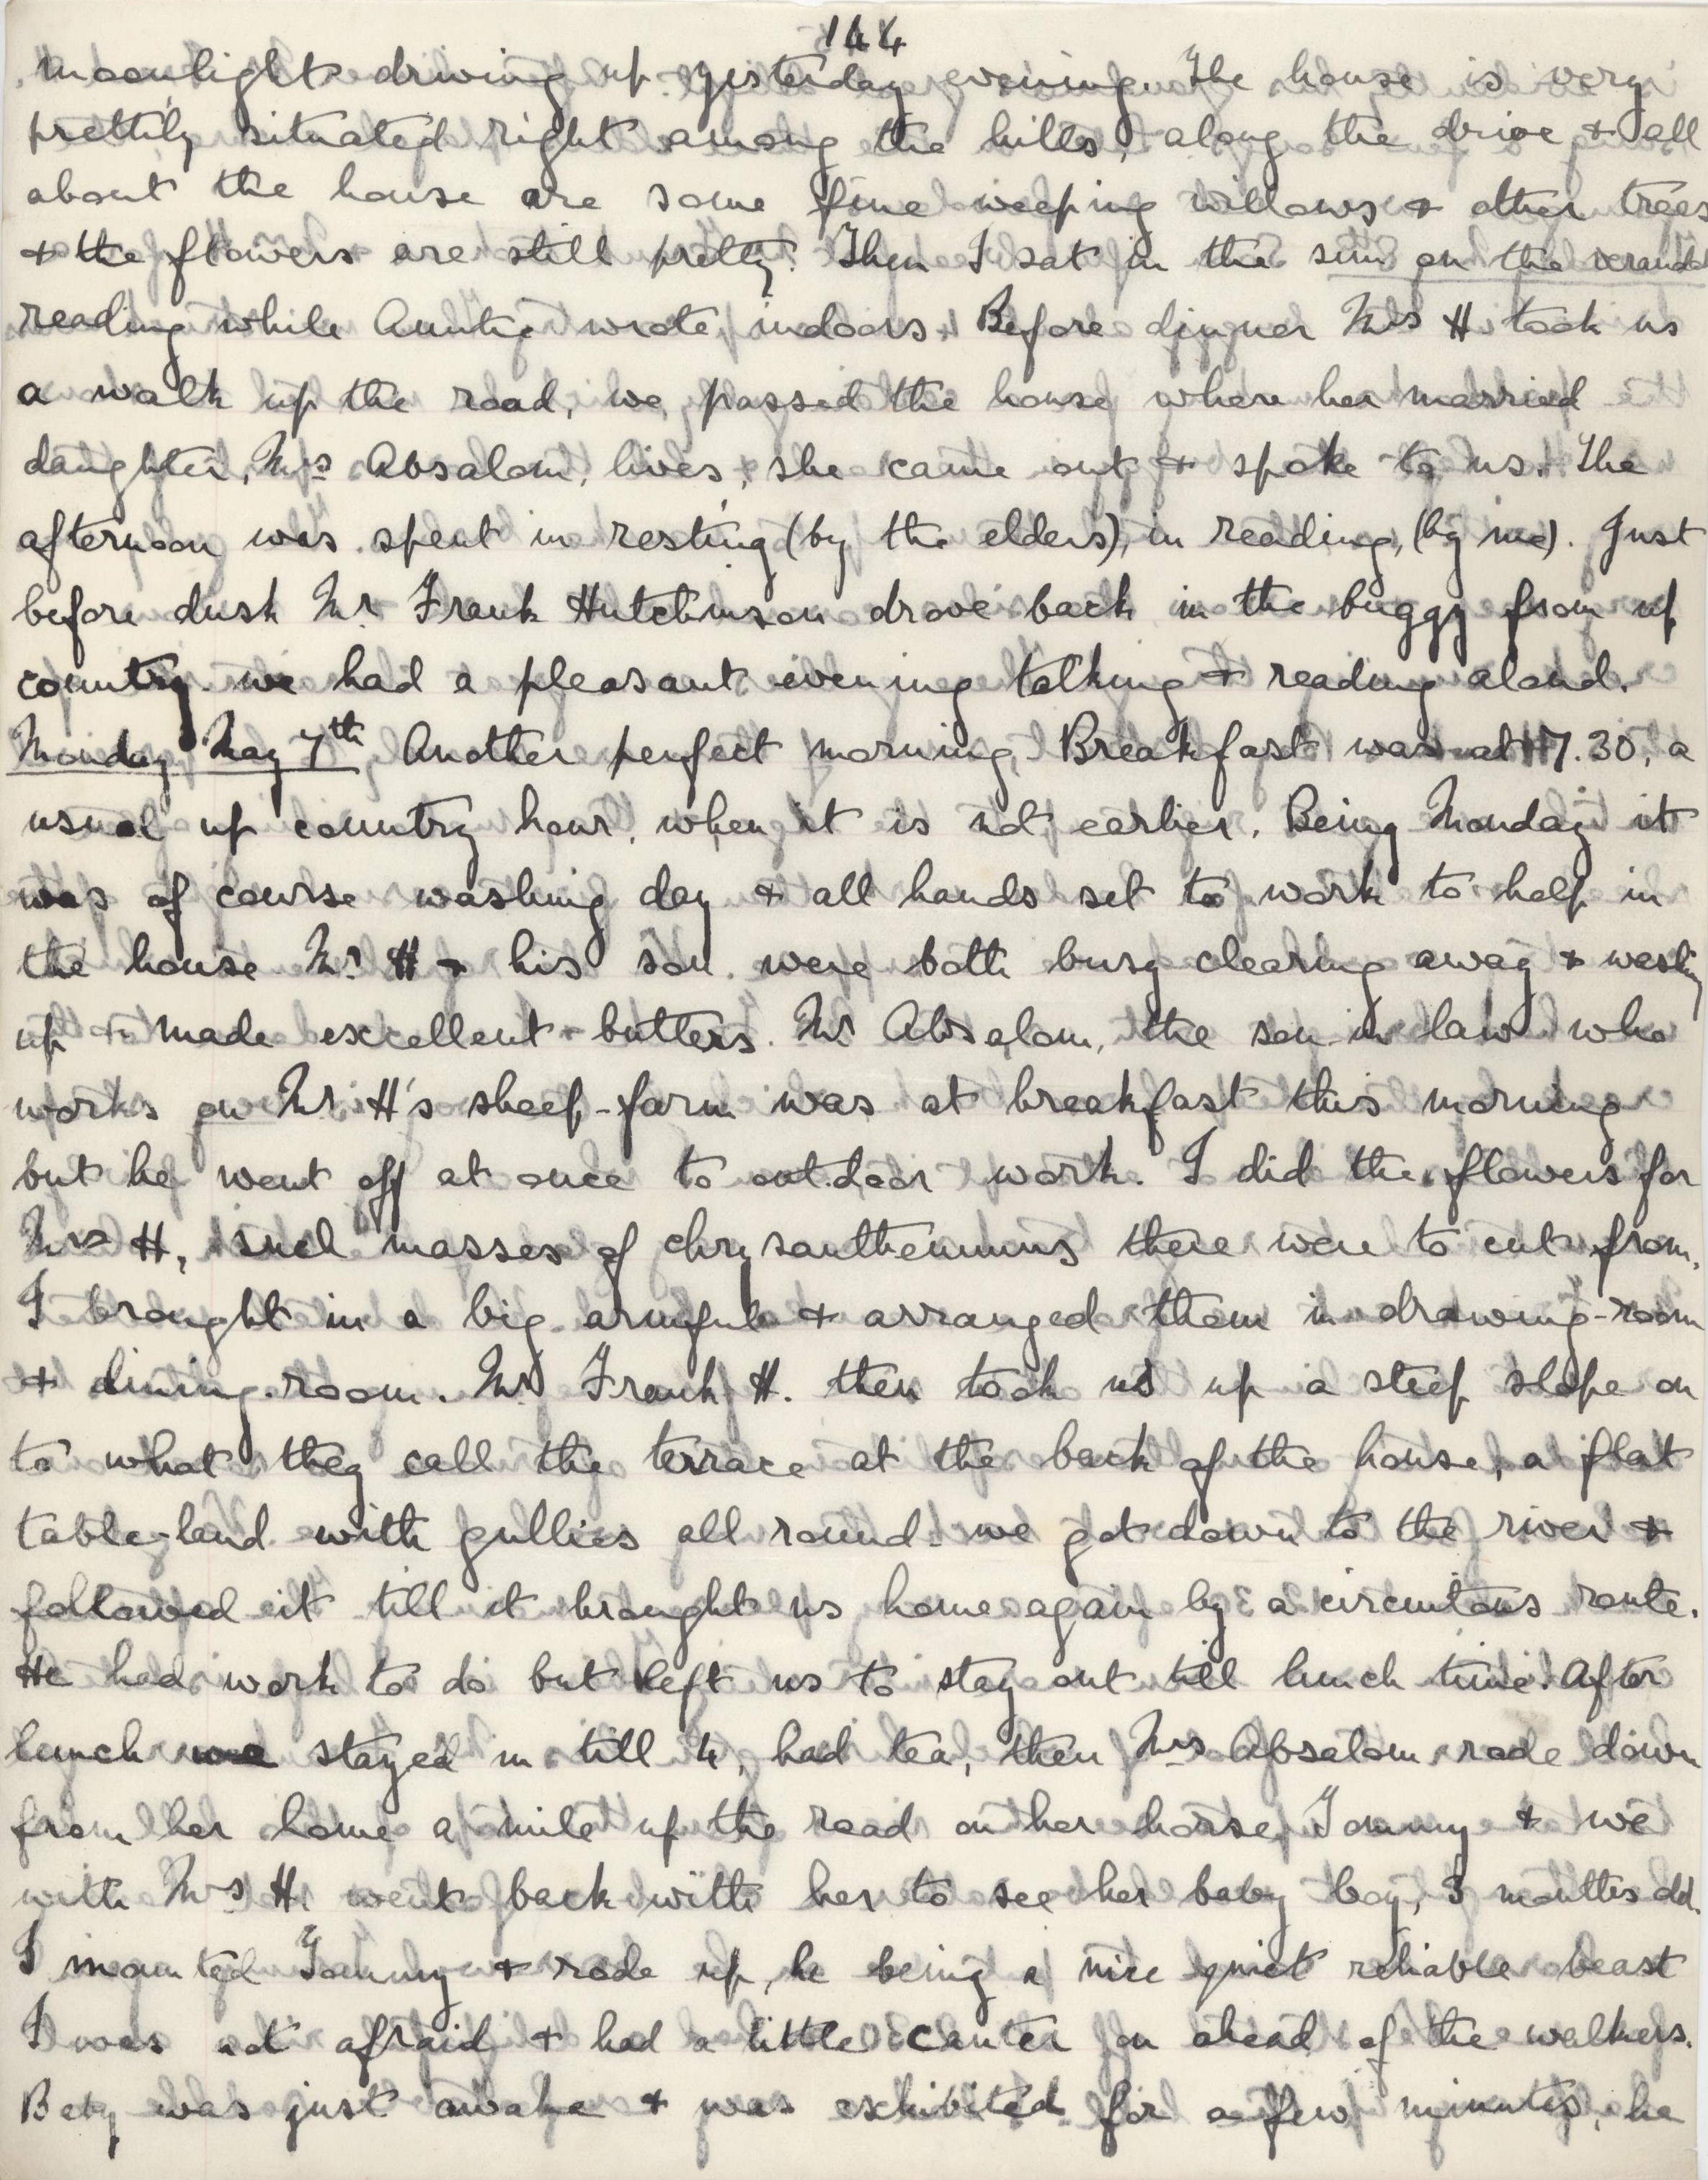 144
moonlight driving up yesterday evening. The house is very
prettily situated right among the hills, along the drive & all
about the house are some fine weeping willows & other trees
& the flowers are still pretty. Then I sat in the sun on the verandah
reading while Auntie wrote indoors. Before dinner Mrs H took us
a walk up the road, we passed the house where her married
daughter, Mrs Absalom, lives, she came out & spoke to us. The
afternoon was spent in resting (by the elders), in reading, (by me). Just
before dusk Mr Frank Hutchinson drove back in the buggy from up
country. we had a pleasant evening talking & reading aloud.
Monday May 7th Another perfect morning. Breakfast was at 7.30, a
usual up country hour, when it is not earlier. Being Monday it
was of course washing day & all hands set to work to help in
the house Mr H & his son were both busy clearing away & washing
up & made excellent butlers. Mr Absalom, the son in law who
works on Mr H's sheep-farm was at breakfast this morning
but he went off at once to outdoor work. I did the flowers for
Mrs H, such masses of chrysanthemums there were to cut from,
I brought in a big armful & arranged them in drawing-room
& dining-room. Mr Frank H. then took us up a steep slope on
to what they call the terrace at the back of the house, a flat
table-land with gullies all round. we got down to the river &
followed it till it brought us home again by a circuitous route.
He had work to do but left us to stay out till lunch time. After
lunch we stayed in till 4, had tea, then Mrs Absalom rode down
from her home a mile up the road on her horse, Tommy & we
with Mrs H. went back with her to see her baby boy, 3 months old.
I mounted Tommy & rode up, he being a nice quiet reliable beast
I was not afraid & had a little canter on ahead of the walkers.
Baby was just awake & was exhibited for a few minutes, he